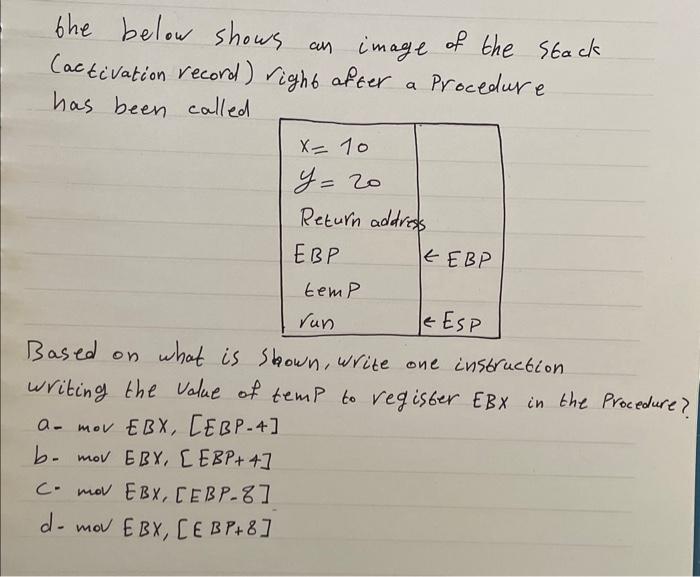 the below shows an image of the stack
(activation record) right after a Procedure
has been called
X= 10
y= 20
Return address
EBP ← EBP
temp
run ← ESP
Based on what is shown, write one instruction
writing the value of temp to register EBX in the Procedure?
a- mov EBX, [EBP-4]
b- mov EBX, [EBP+4]
c- mov EBX, [EBP-8]
d- mov EBX, [EBP+8]